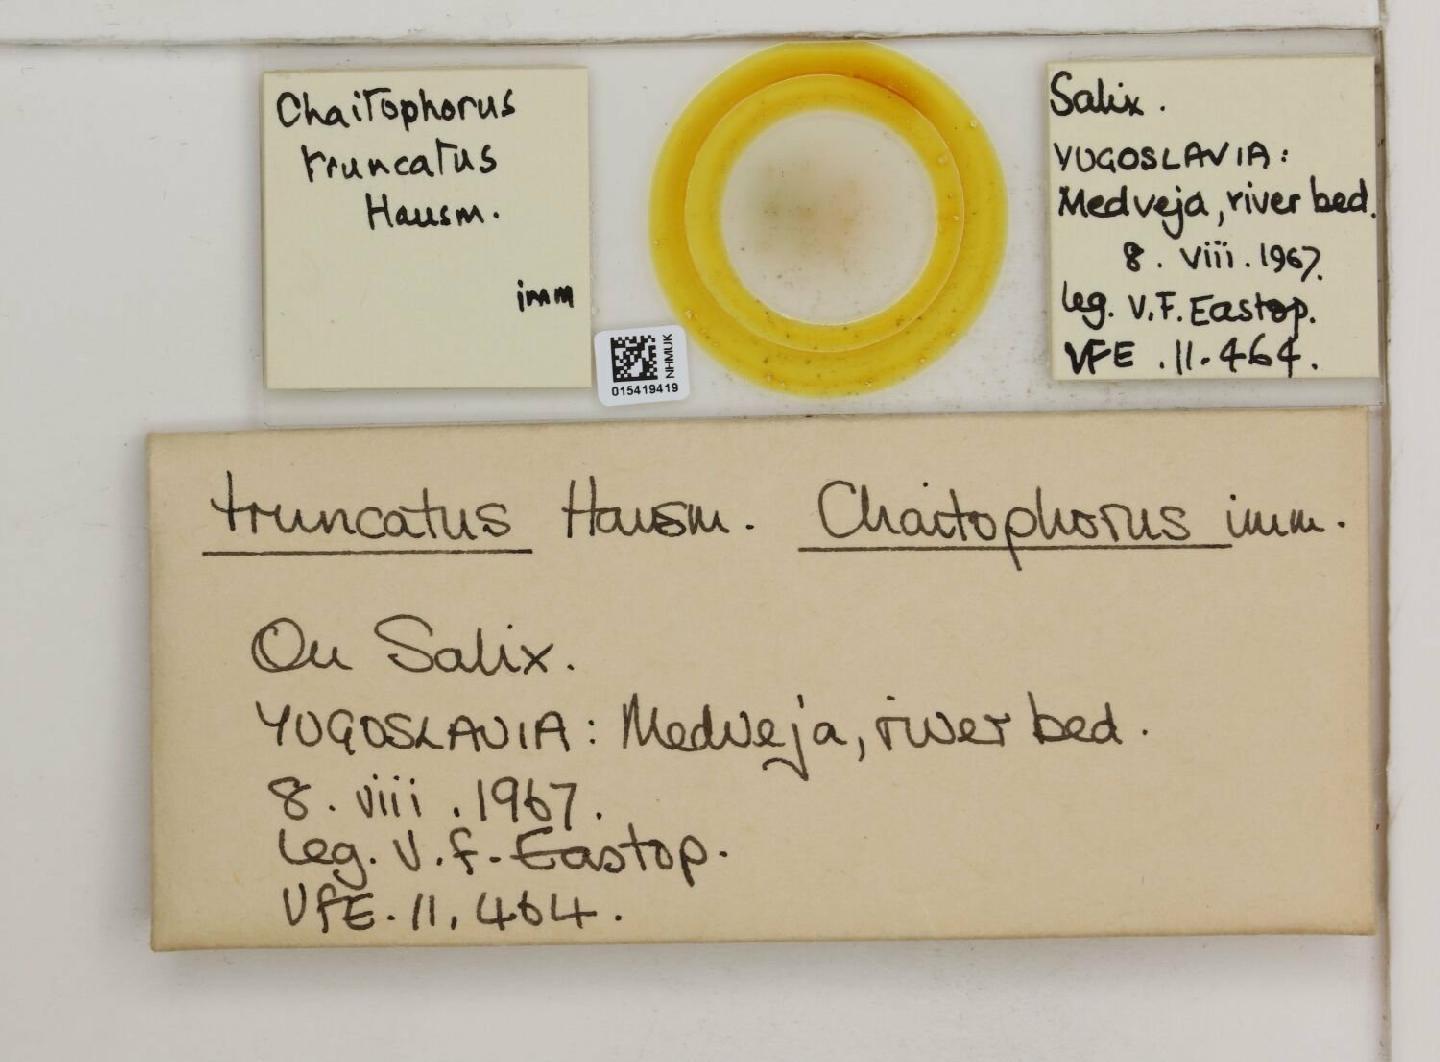 Chaitophorus
truncatus
Hausm.
imm
NHMUK
015419419
Salix.
YUGOSLAVIA:
Medveja, river bed.
8. viii. 1967.
leg. V.F. Eastop.
VFE. 11. 464.
truncatus Hausm. Chaitophorus imm.
On Salix.
YUGOSLAVIA: Medveja, river bed.
8. viii. 1967.
leg. V.F. Eastop.
VFE. 11. 464.